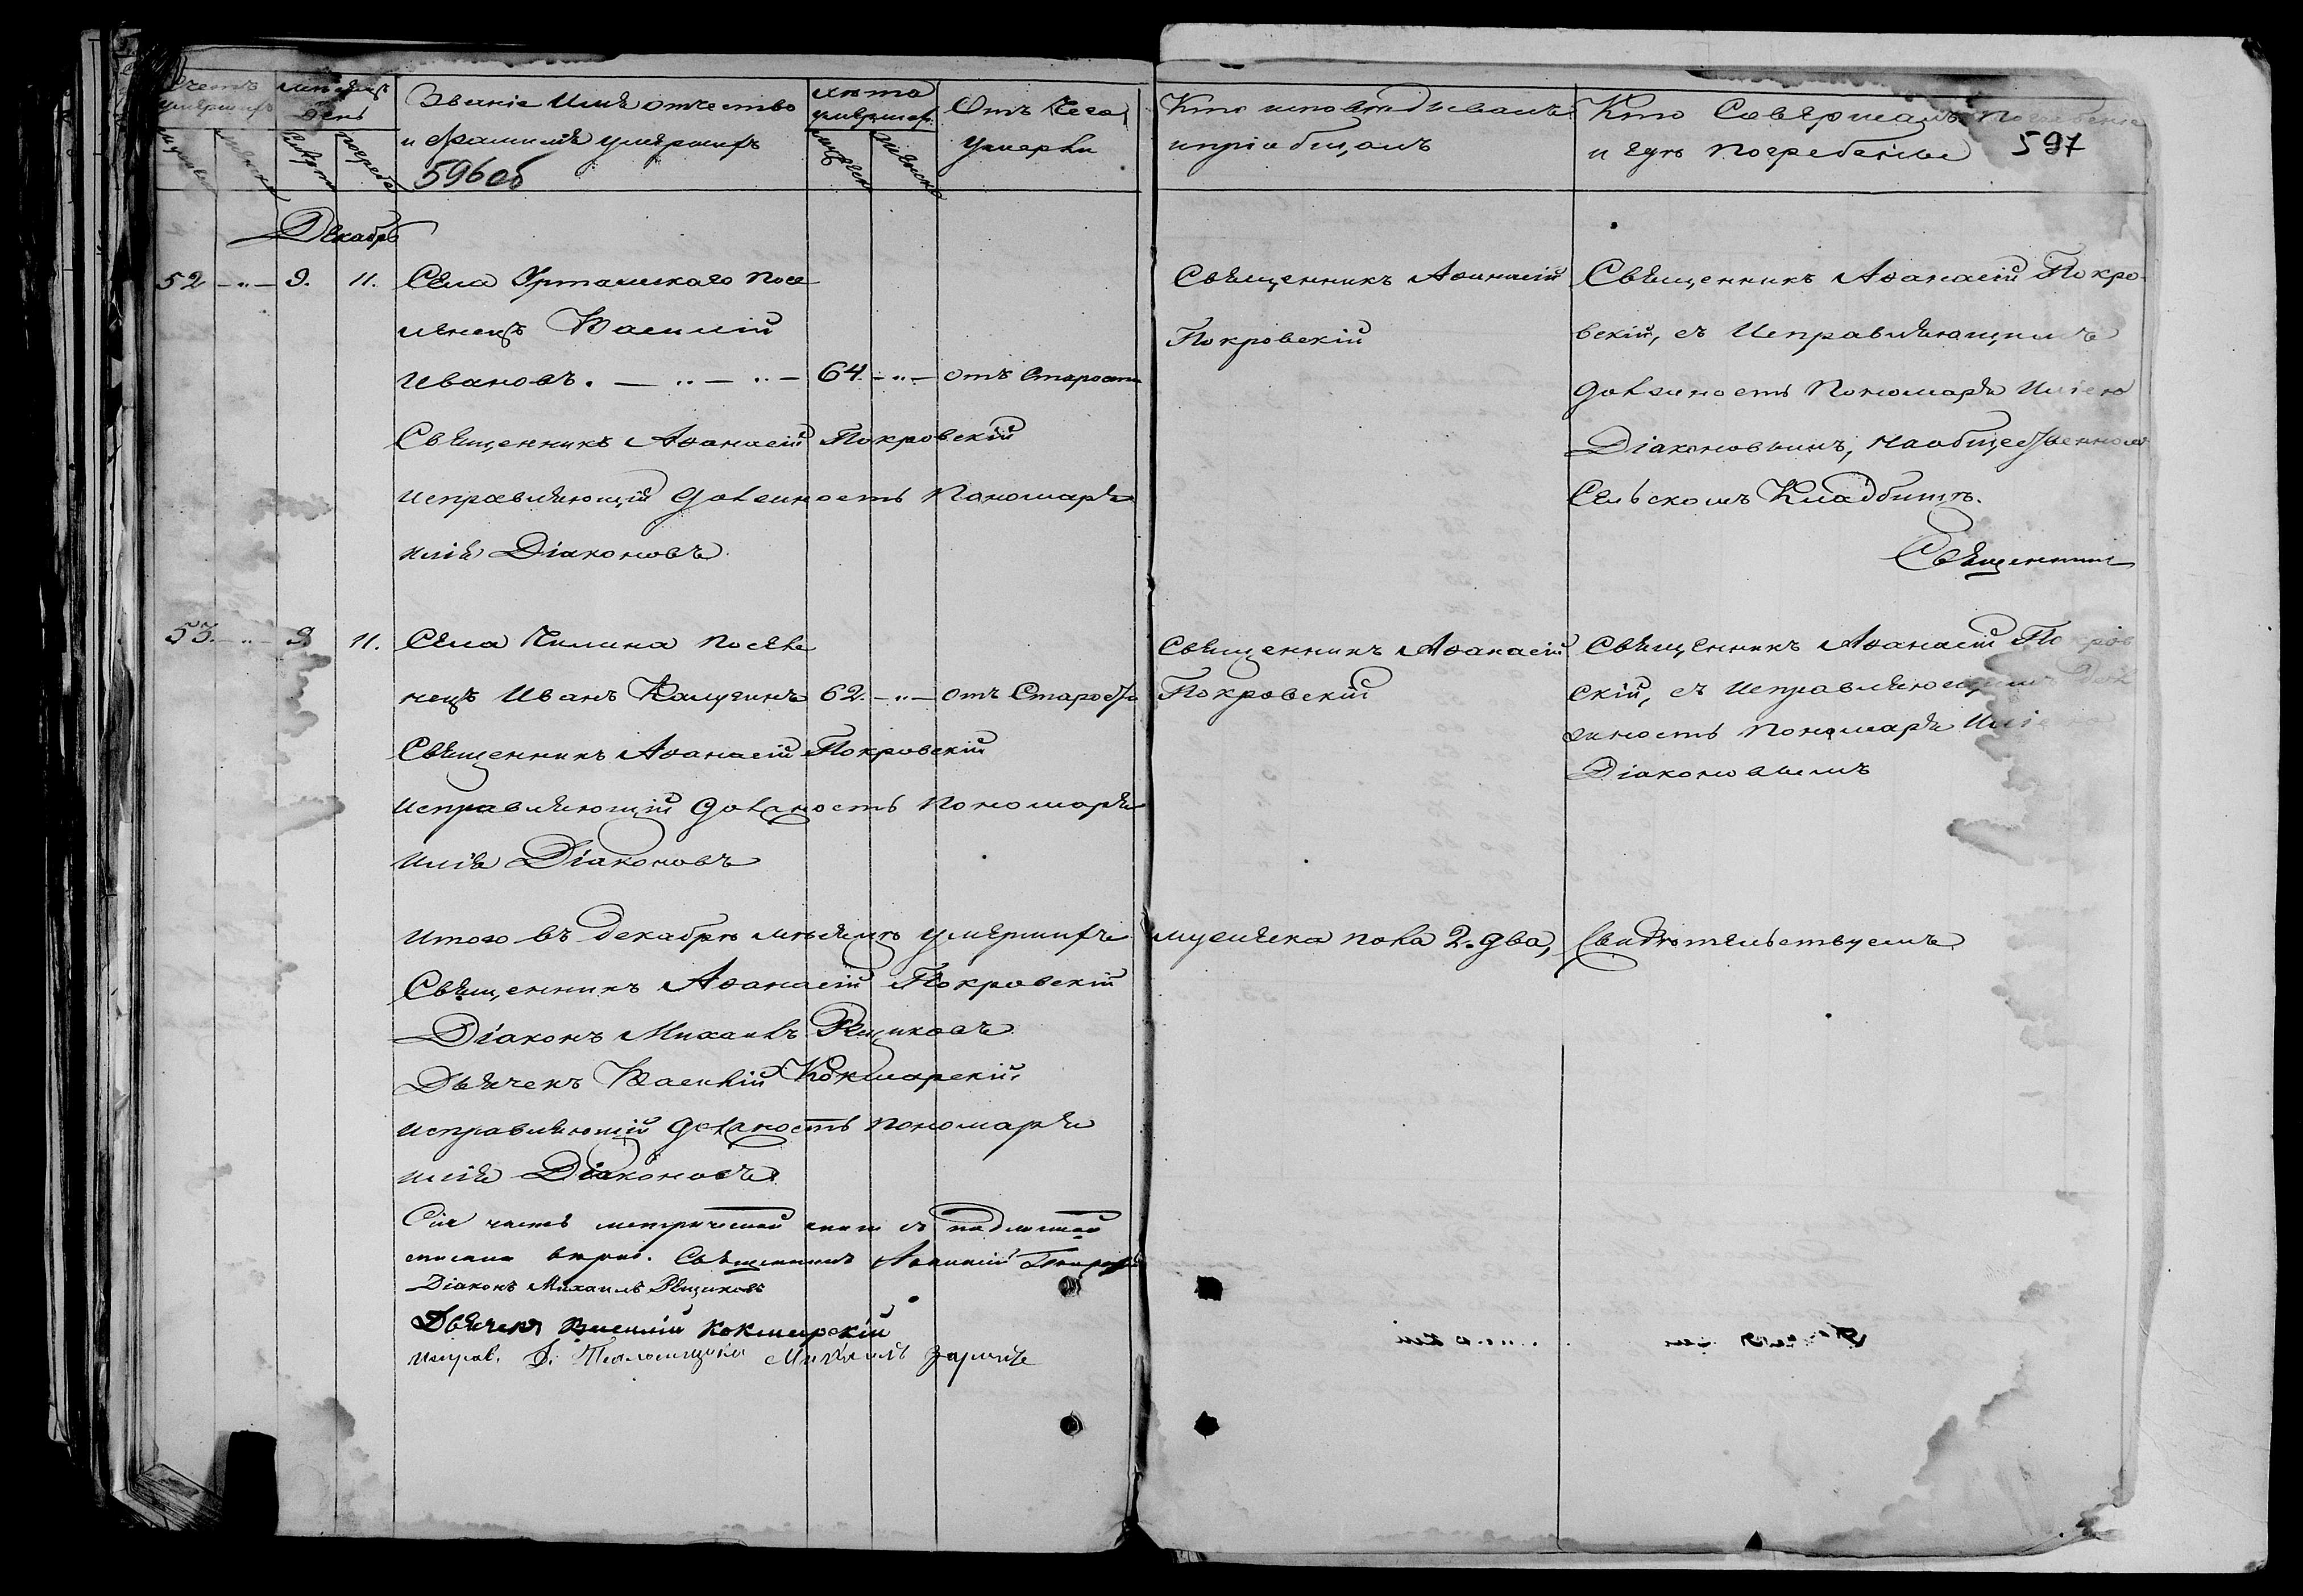 Счетъ умершихъ
Мѣсяцъ и день
Званіе Имя отчество
и Фамилія умершихъ
596об
Лѣта умершаго
Отъ Чего
умерли
Кто исповѣдывалъ
и пріобщалъ
Кто Совершалъ Погребеніе
и гдѣ Погребены
597
Декабрь
52 9. 11. Села Урташскаго Посе
ленецъ Василій
Ивановъ. 64. отъ Старости
Священникъ Аѳанасій Покровскій
исправляющій должность Пономаря
Илія Діаконовъ
Священникъ Аѳанасій
Покровскій
Священникъ Аѳанасій Покро
вскій, съ Исправляющимъ
должность Пономаря Иліею
Діаконовымъ, на общественномъ
Сельскомъ Кладбищѣ.
Священникъ
53. 9 11. Села Чилина Поселе
нецъ Иванъ Калугинъ 62. отъ Старости
Священникъ Аѳанасій Покровскій
исправляющій должность пономаря
Илія Діаконовъ
Священникъ Аѳанасій
Покровскій
Священникъ Аѳанасій Покров
скій, съ исправляющимъ дол
жность Пономаря Иліею
Діаконовымъ
Итого въ декабрѣ мѣсяцѣ умершихъ мужеска пола 2. два, Свидѣтельствуемъ
Священникъ Аѳанасій Покровскій
Діаконъ Михаилъ Рѣщиковъ
Дьячекъ Василій Кокшарскій.
исправляющій должность пономаря
Илія Діаконовъ
Сія часть метрической книги съ подлинной
списана вѣрно. Священникъ Аѳанасій Покровскій
Діаконъ Михаилъ Рѣщиковъ
Дьячекъ Василій Кокшарскій
Исправ. д. Михаилъ